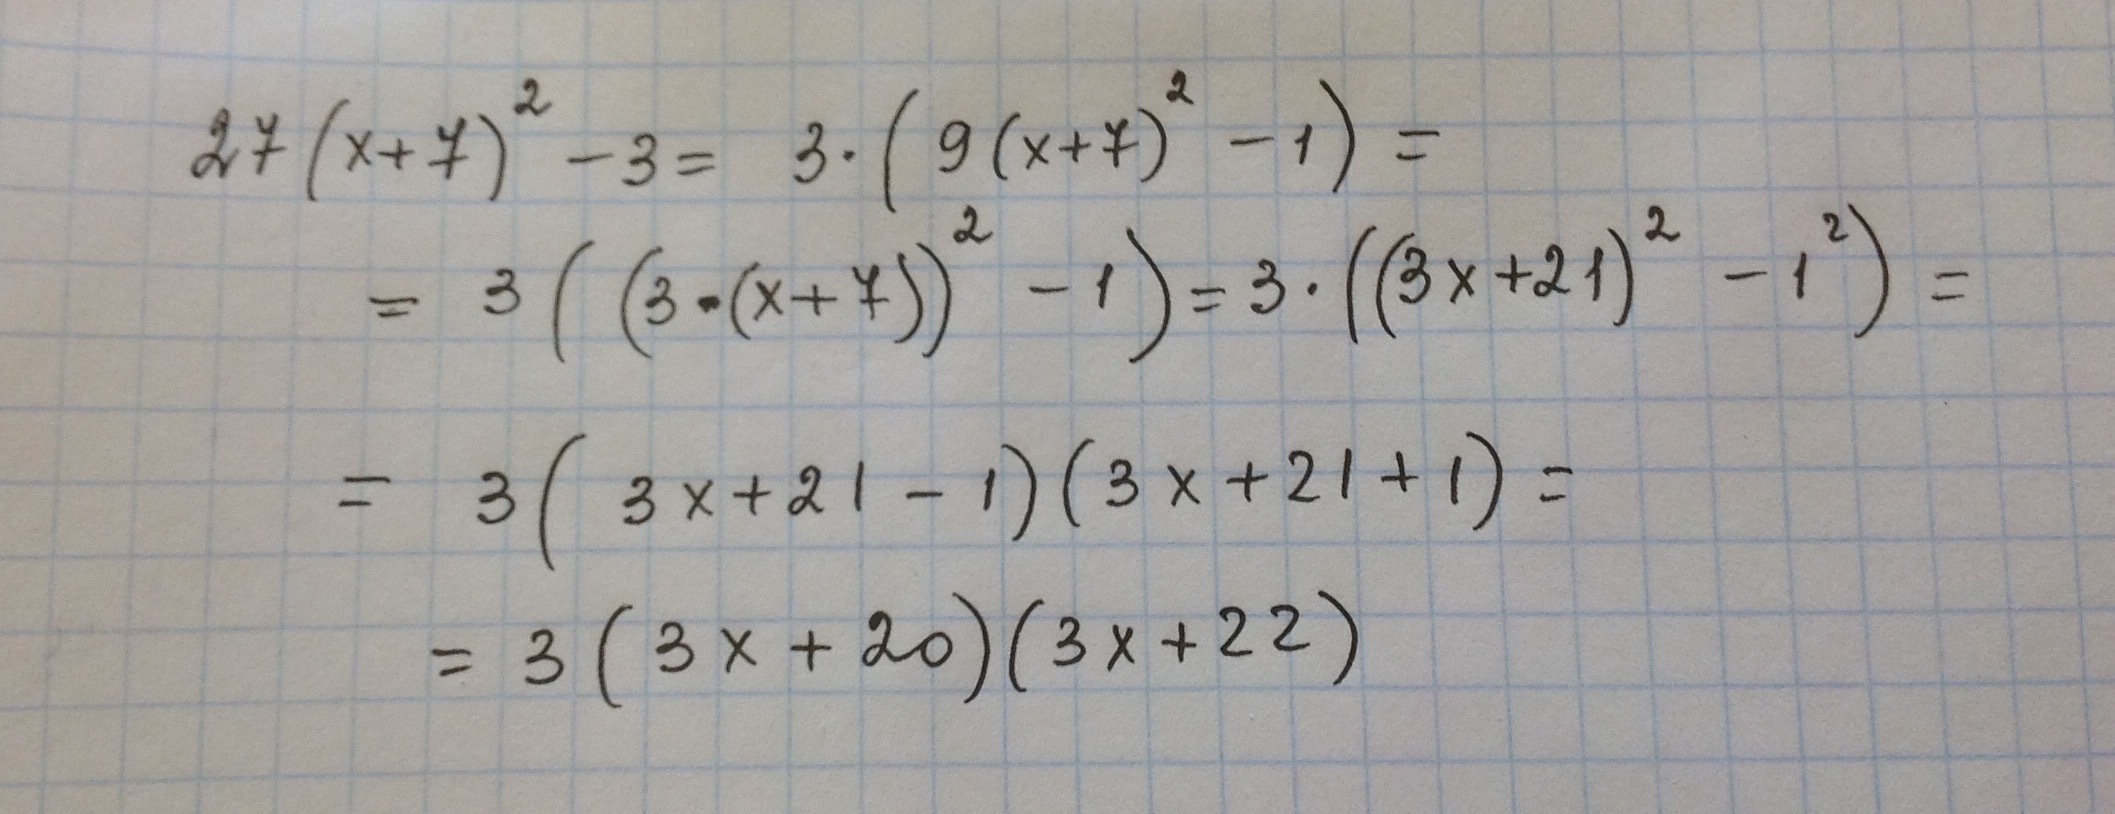 27(x+7)² -3 = 3·(9(x+7)² -1) =
= 3((3·(x+7))² -1) = 3·((3x+21)² -1²) =
= 3(3x+21-1)(3x+21+1) =
= 3(3x+20)(3x+22)